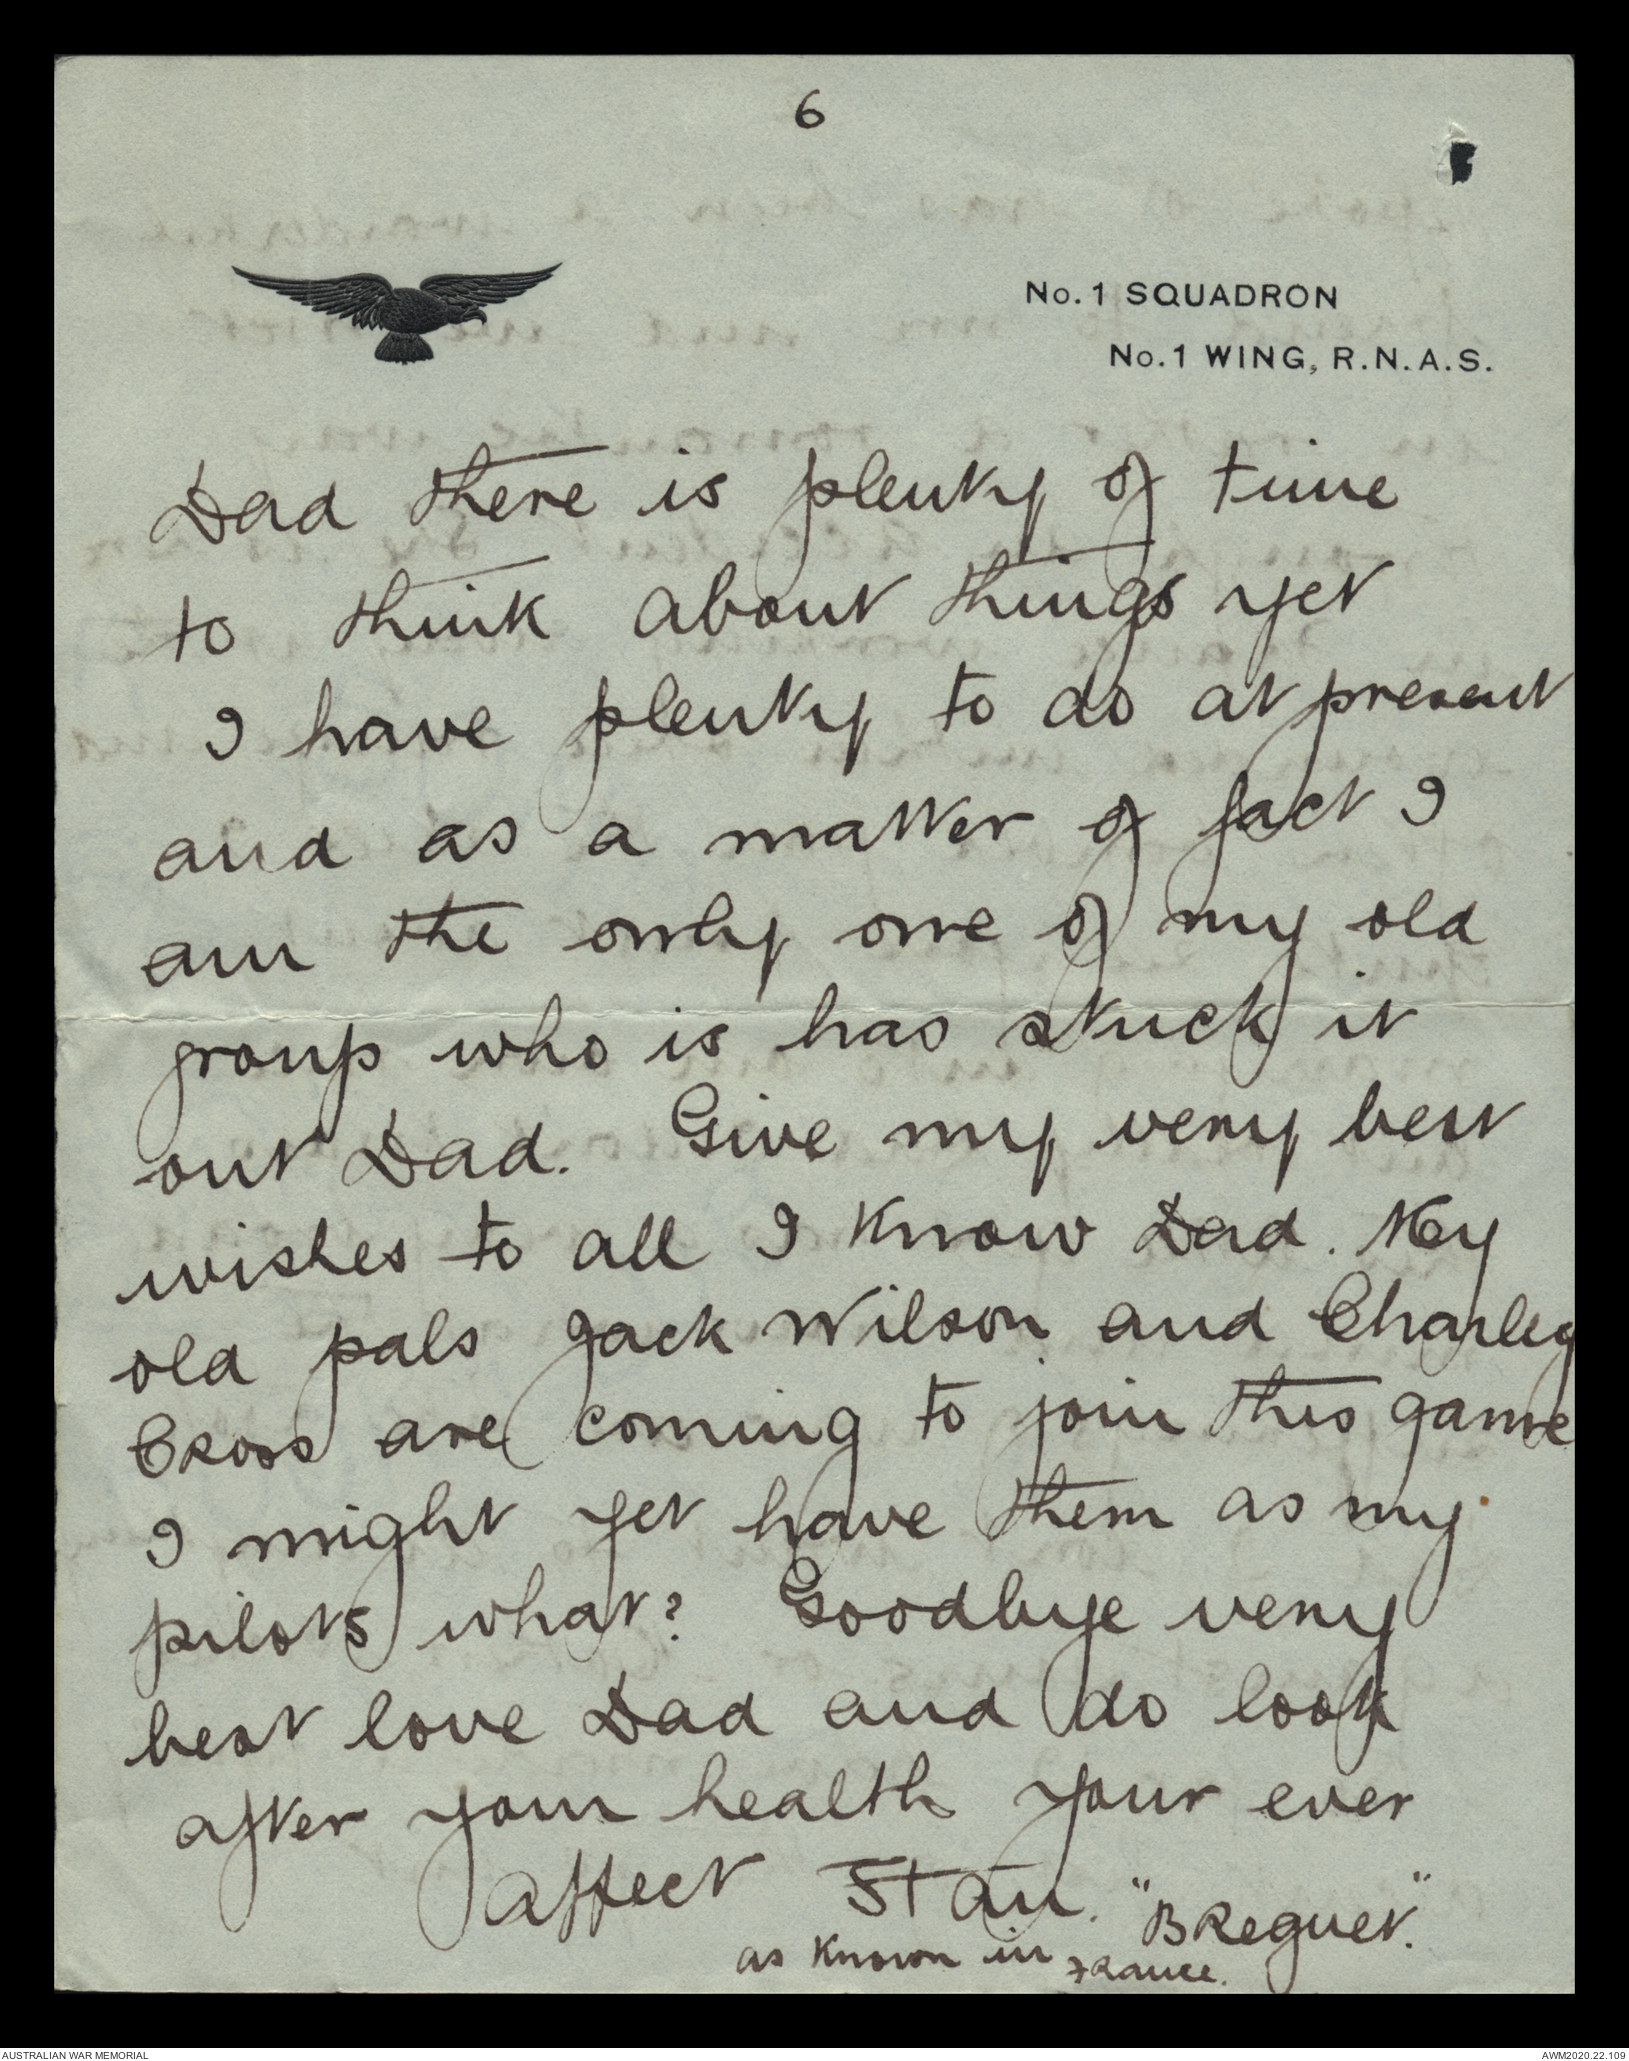 6
No. 1 SQUADRON
No. 1 WING, R.N.A.S.
Dad there is plenty of time
to think about things yet
I have plenty to do at present
and as a matter of fact I
am the only one of my old
group who is has stuck it
out Dad. Give my very best
wishes to all I know Dad. My
old pals Jack Wilson and Charley
Cross are coming to join this game
I might yet have them as my
pilots what? Goodbye very
best love Dad and do look
after your health your ever
affect Stan. "BReguet."
as known in France.
AUSTRALIAN WAR MEMORIAL
AWM2020.22.109